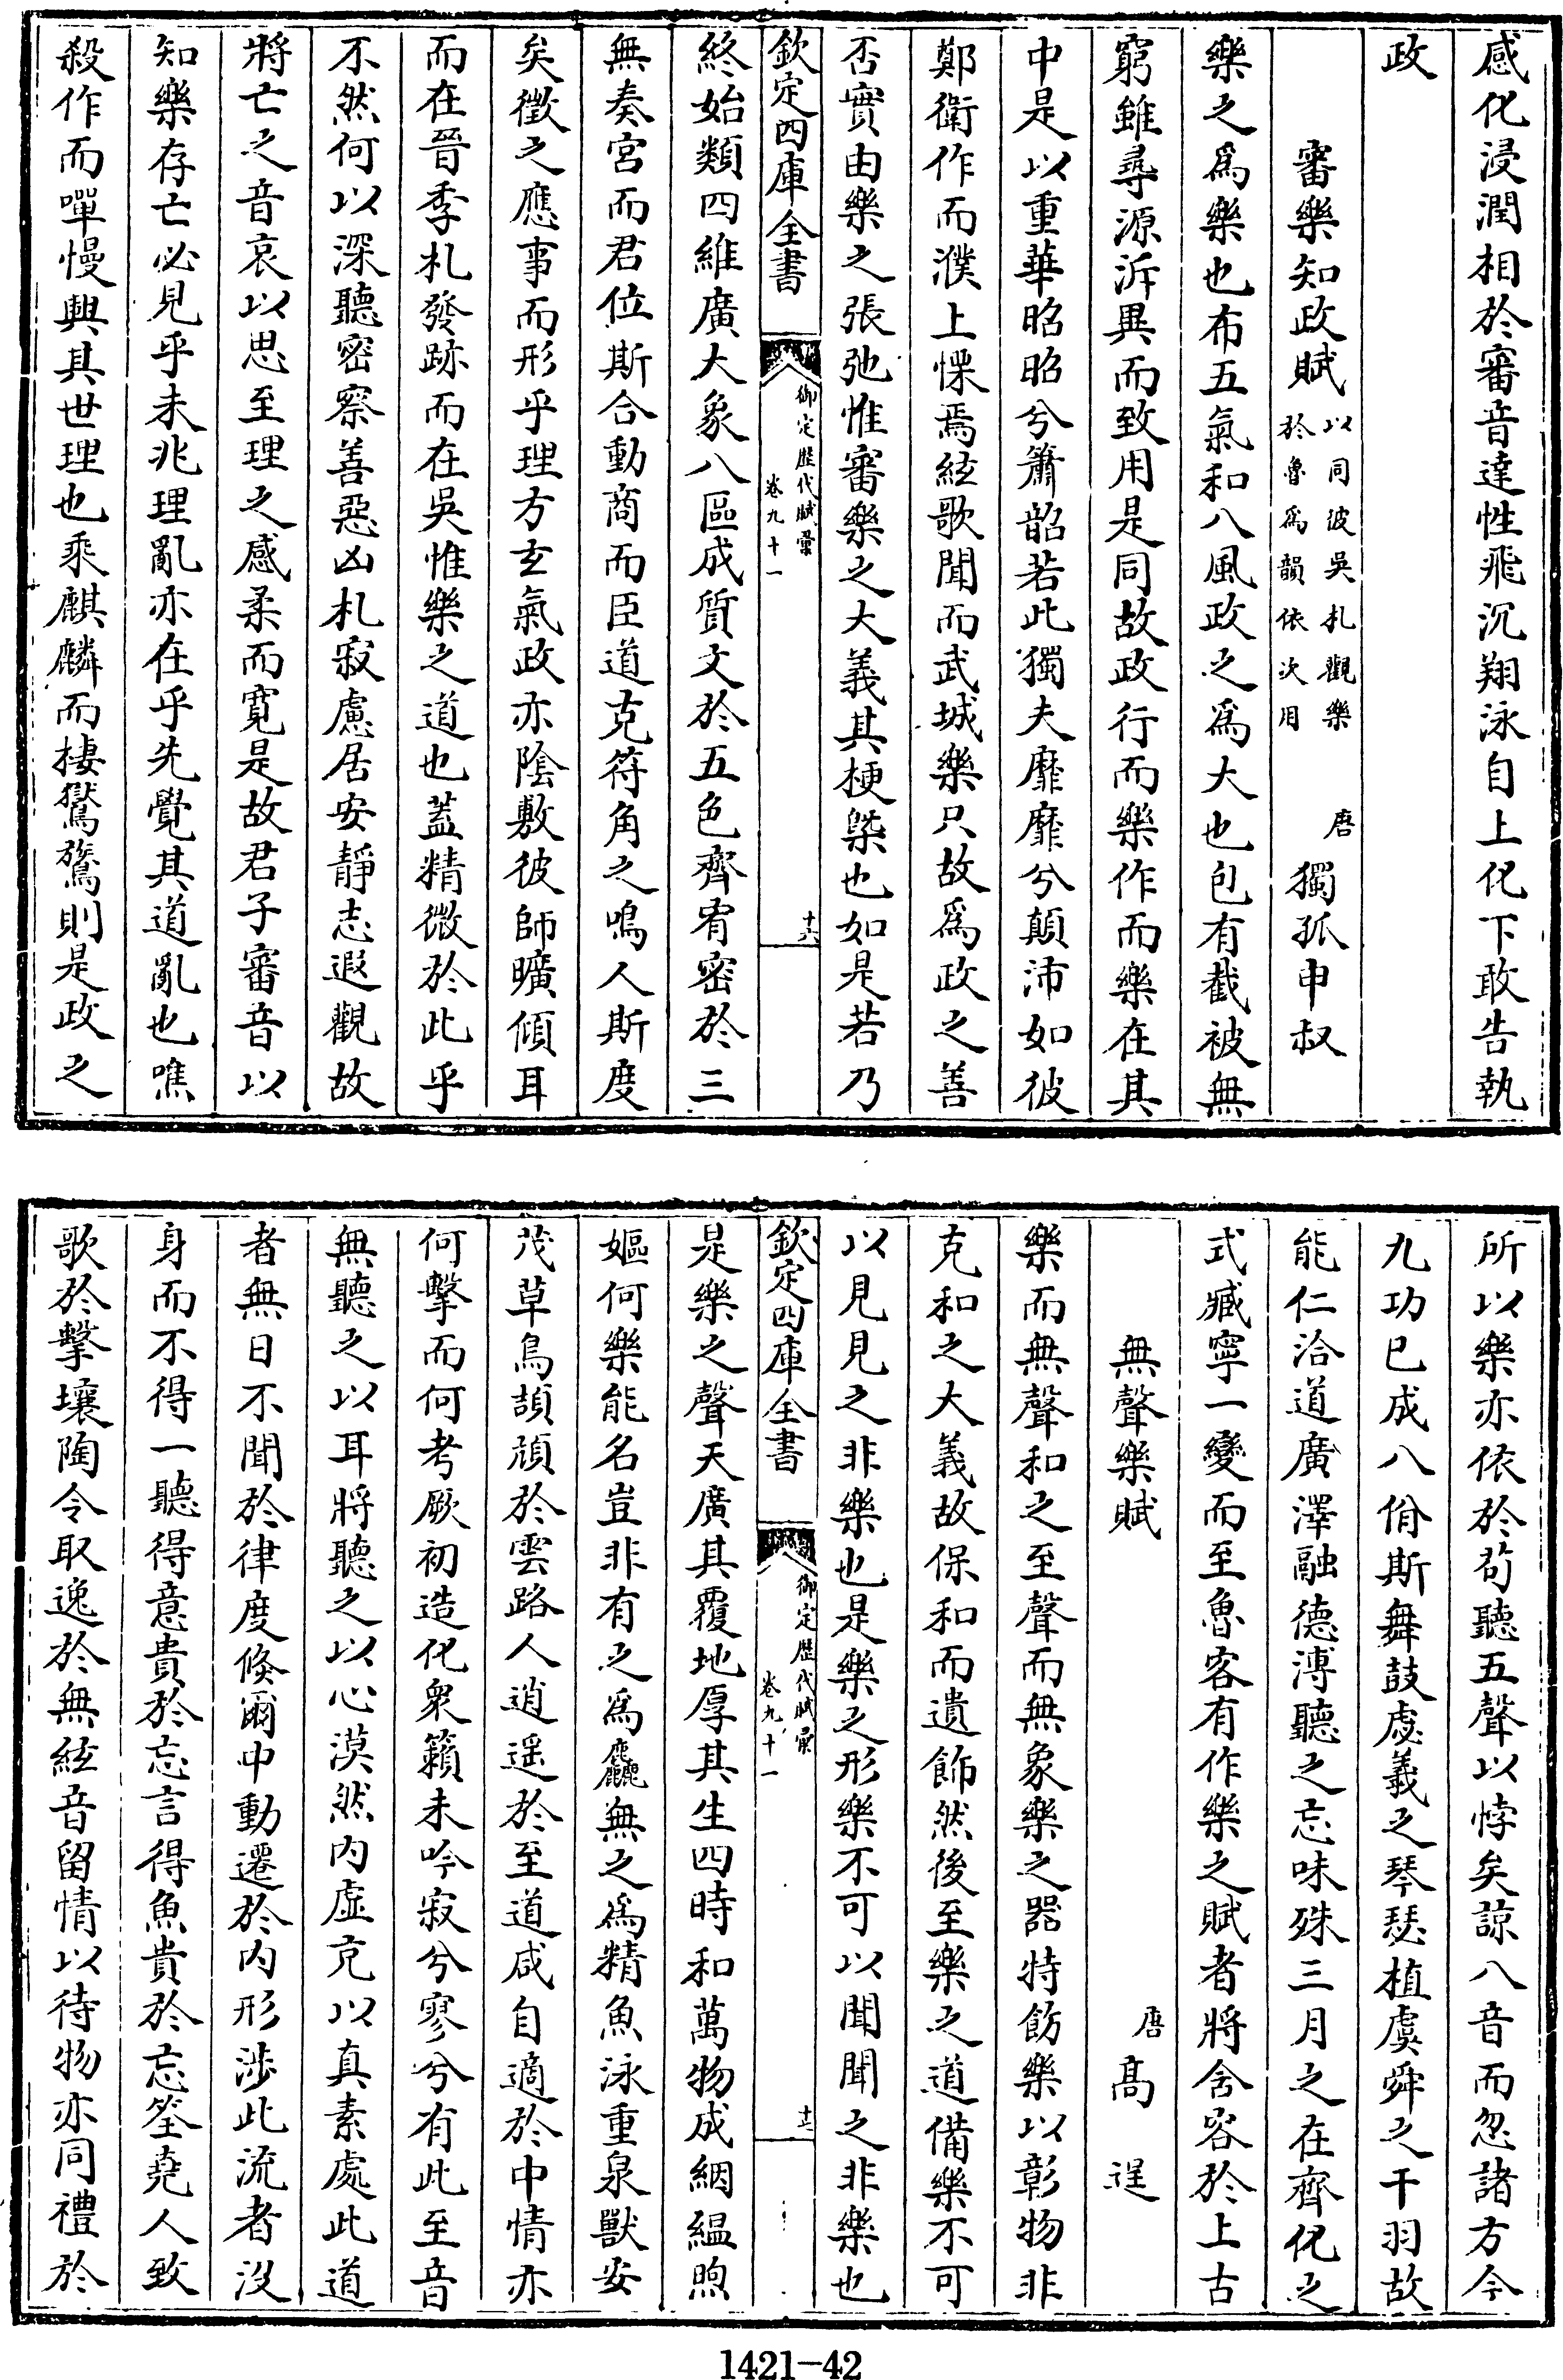 感化浸潤相於審音達性飛沉翔泳自上化下敢告執
政
審樂知政賦以同彼吳札觀樂於魯爲韻依次用 唐 獨孤申叔
樂之爲樂也布五氣和八風政之爲大也包有截被無
窮雖尋源泝異而致用是同故政行而樂作而樂在其
中是以重華昭昭兮簫韶若此獨夫靡靡兮顛沛如彼
鄭衛作而濮上慄焉絃歌聞而武城樂只故爲政之善
否實由樂之張弛惟審樂之大義其梗槩也如是若乃
欽定四庫全書 御定歷代賦彙 卷九十一 十六
終始類四維廣大象八區成質文於五色齊宥密於三
無奏宮而君位斯合動商而臣道克符角之鳴人斯度
矣徵之應事而形乎理方玄氣政亦陰敷彼師曠傾耳
而在晉季札發跡而在吳惟樂之道也蓋精微於此乎
不然何以深聽密察善惡凶札寂慮居安靜志遐觀故
將亡之音哀以思至理之感柔而寬是故君子審音以
知樂存亡必見乎未兆理亂亦在乎先覺其道亂也噍
殺作而嘽慢興其世理也乘麒麟而棲鸑鷟則是政之
所以樂亦依於苟聽五聲以悖矣諒八音而忽諸方今
九功已成八佾斯舞鼓虙羲之琴瑟植虞舜之干羽故
能仁洽道廣澤融德溥聽之忘味殊三月之在齊化之
式臧寧一變而至魯客有作樂之賦者將含容於上古
無聲樂賦 唐 高 逞
樂而無聲和之至聲而無象樂之器特飭樂以彰物非
克和之大義故保和而遺飾然後至樂之道備樂不可
以見見之非樂也是樂之形樂不可以聞聞之非樂也
欽定四庫全書 御定歷代賦彙 卷九十一 十七
是樂之聲天廣其覆地厚其生四時和萬物成絪縕煦
嫗何樂能名豈非有之爲麤無之爲精魚泳重泉獸安
茂草鳥頡頏於雲路人逍遙於至道咸自適於中情亦
何擊而何考厥初造化衆籟未吟寂兮寥兮有此至音
無聽之以耳將聽之以心漠然內虛克以真素處此道
者無日不聞於律度倏爾中動遷於內形涉此流者沒
身而不得一聽得意貴於忘言得魚貴於忘筌堯人致
歌於擊壤陶令取逸於無絃音留情以待物亦同禮於
1421-42